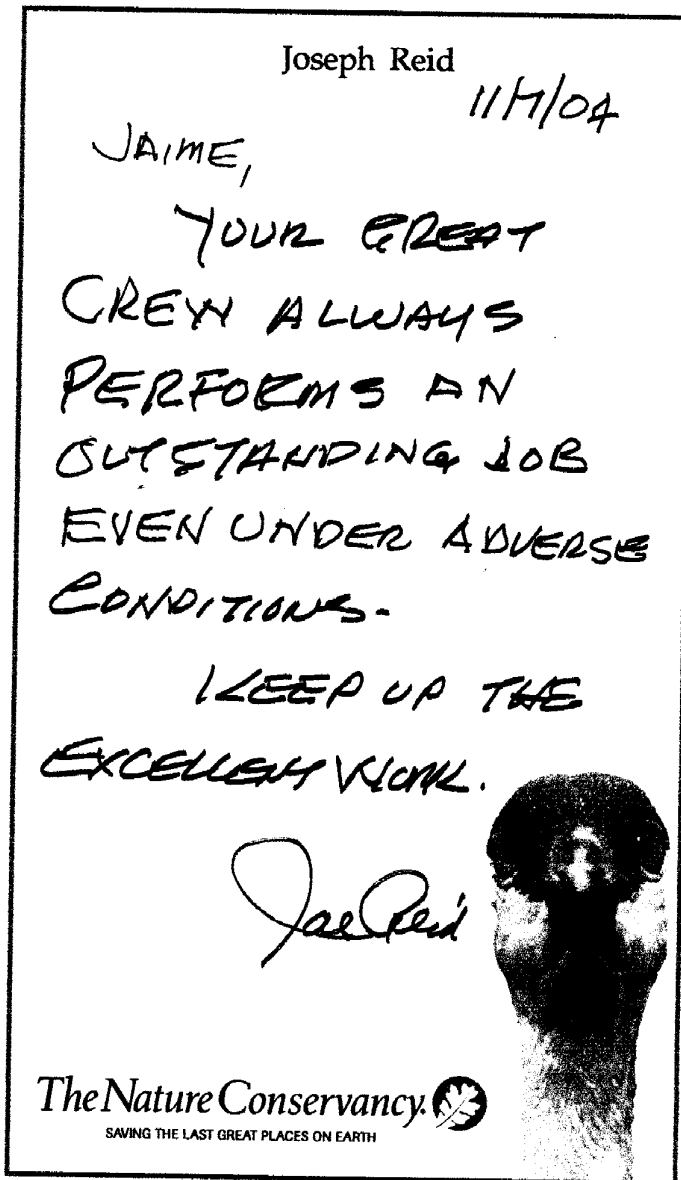 Joseph Reid
11/7/04
JAIME,
YOUR GREAT
CREW ALWAYS
PERFORMS AN
OUTSTANDING JOB
EVEN UNDER ADVERSE
CONDITIONS-
KEEP UP THE
EXCELLENT WORK.
Joe Reid
The Nature Conservancy.
SAVING THE LAST GREAT PLACES ON EARTH